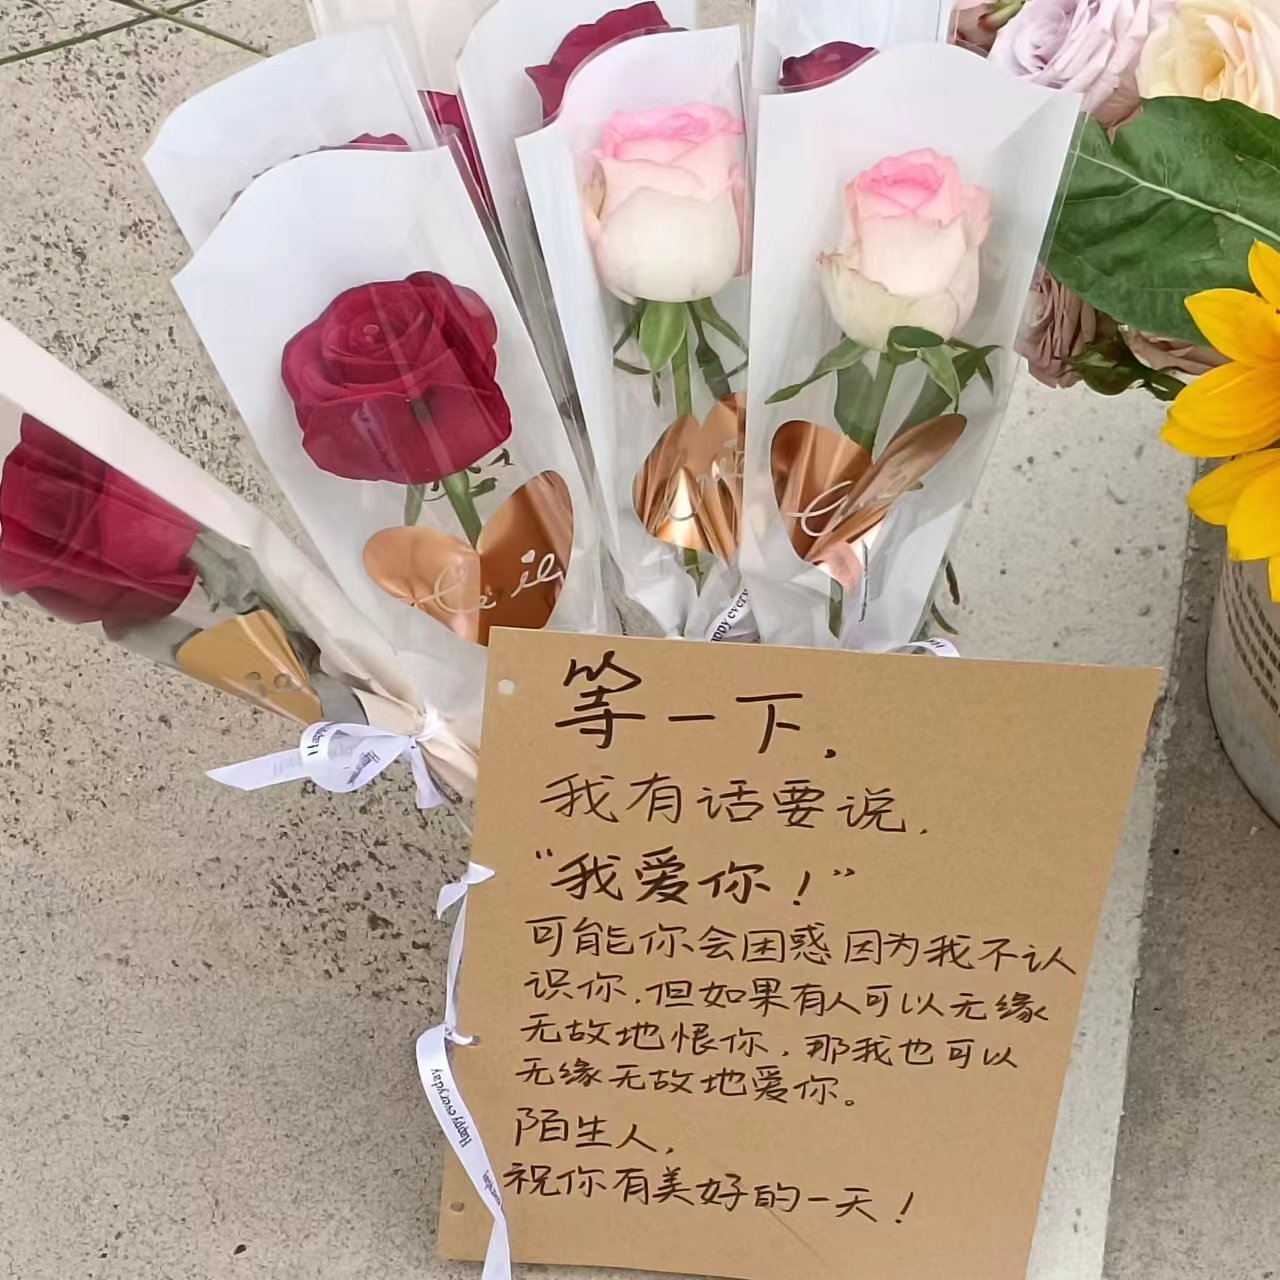 等一下，
我有话要说.
“我爱你！”
可能你会困惑因为我不认
识你.但如果有人可以无缘
无故地恨你.那我也可以
无缘无故地爱你。
陌生人，
祝你有美好的一天！
Happy everyday